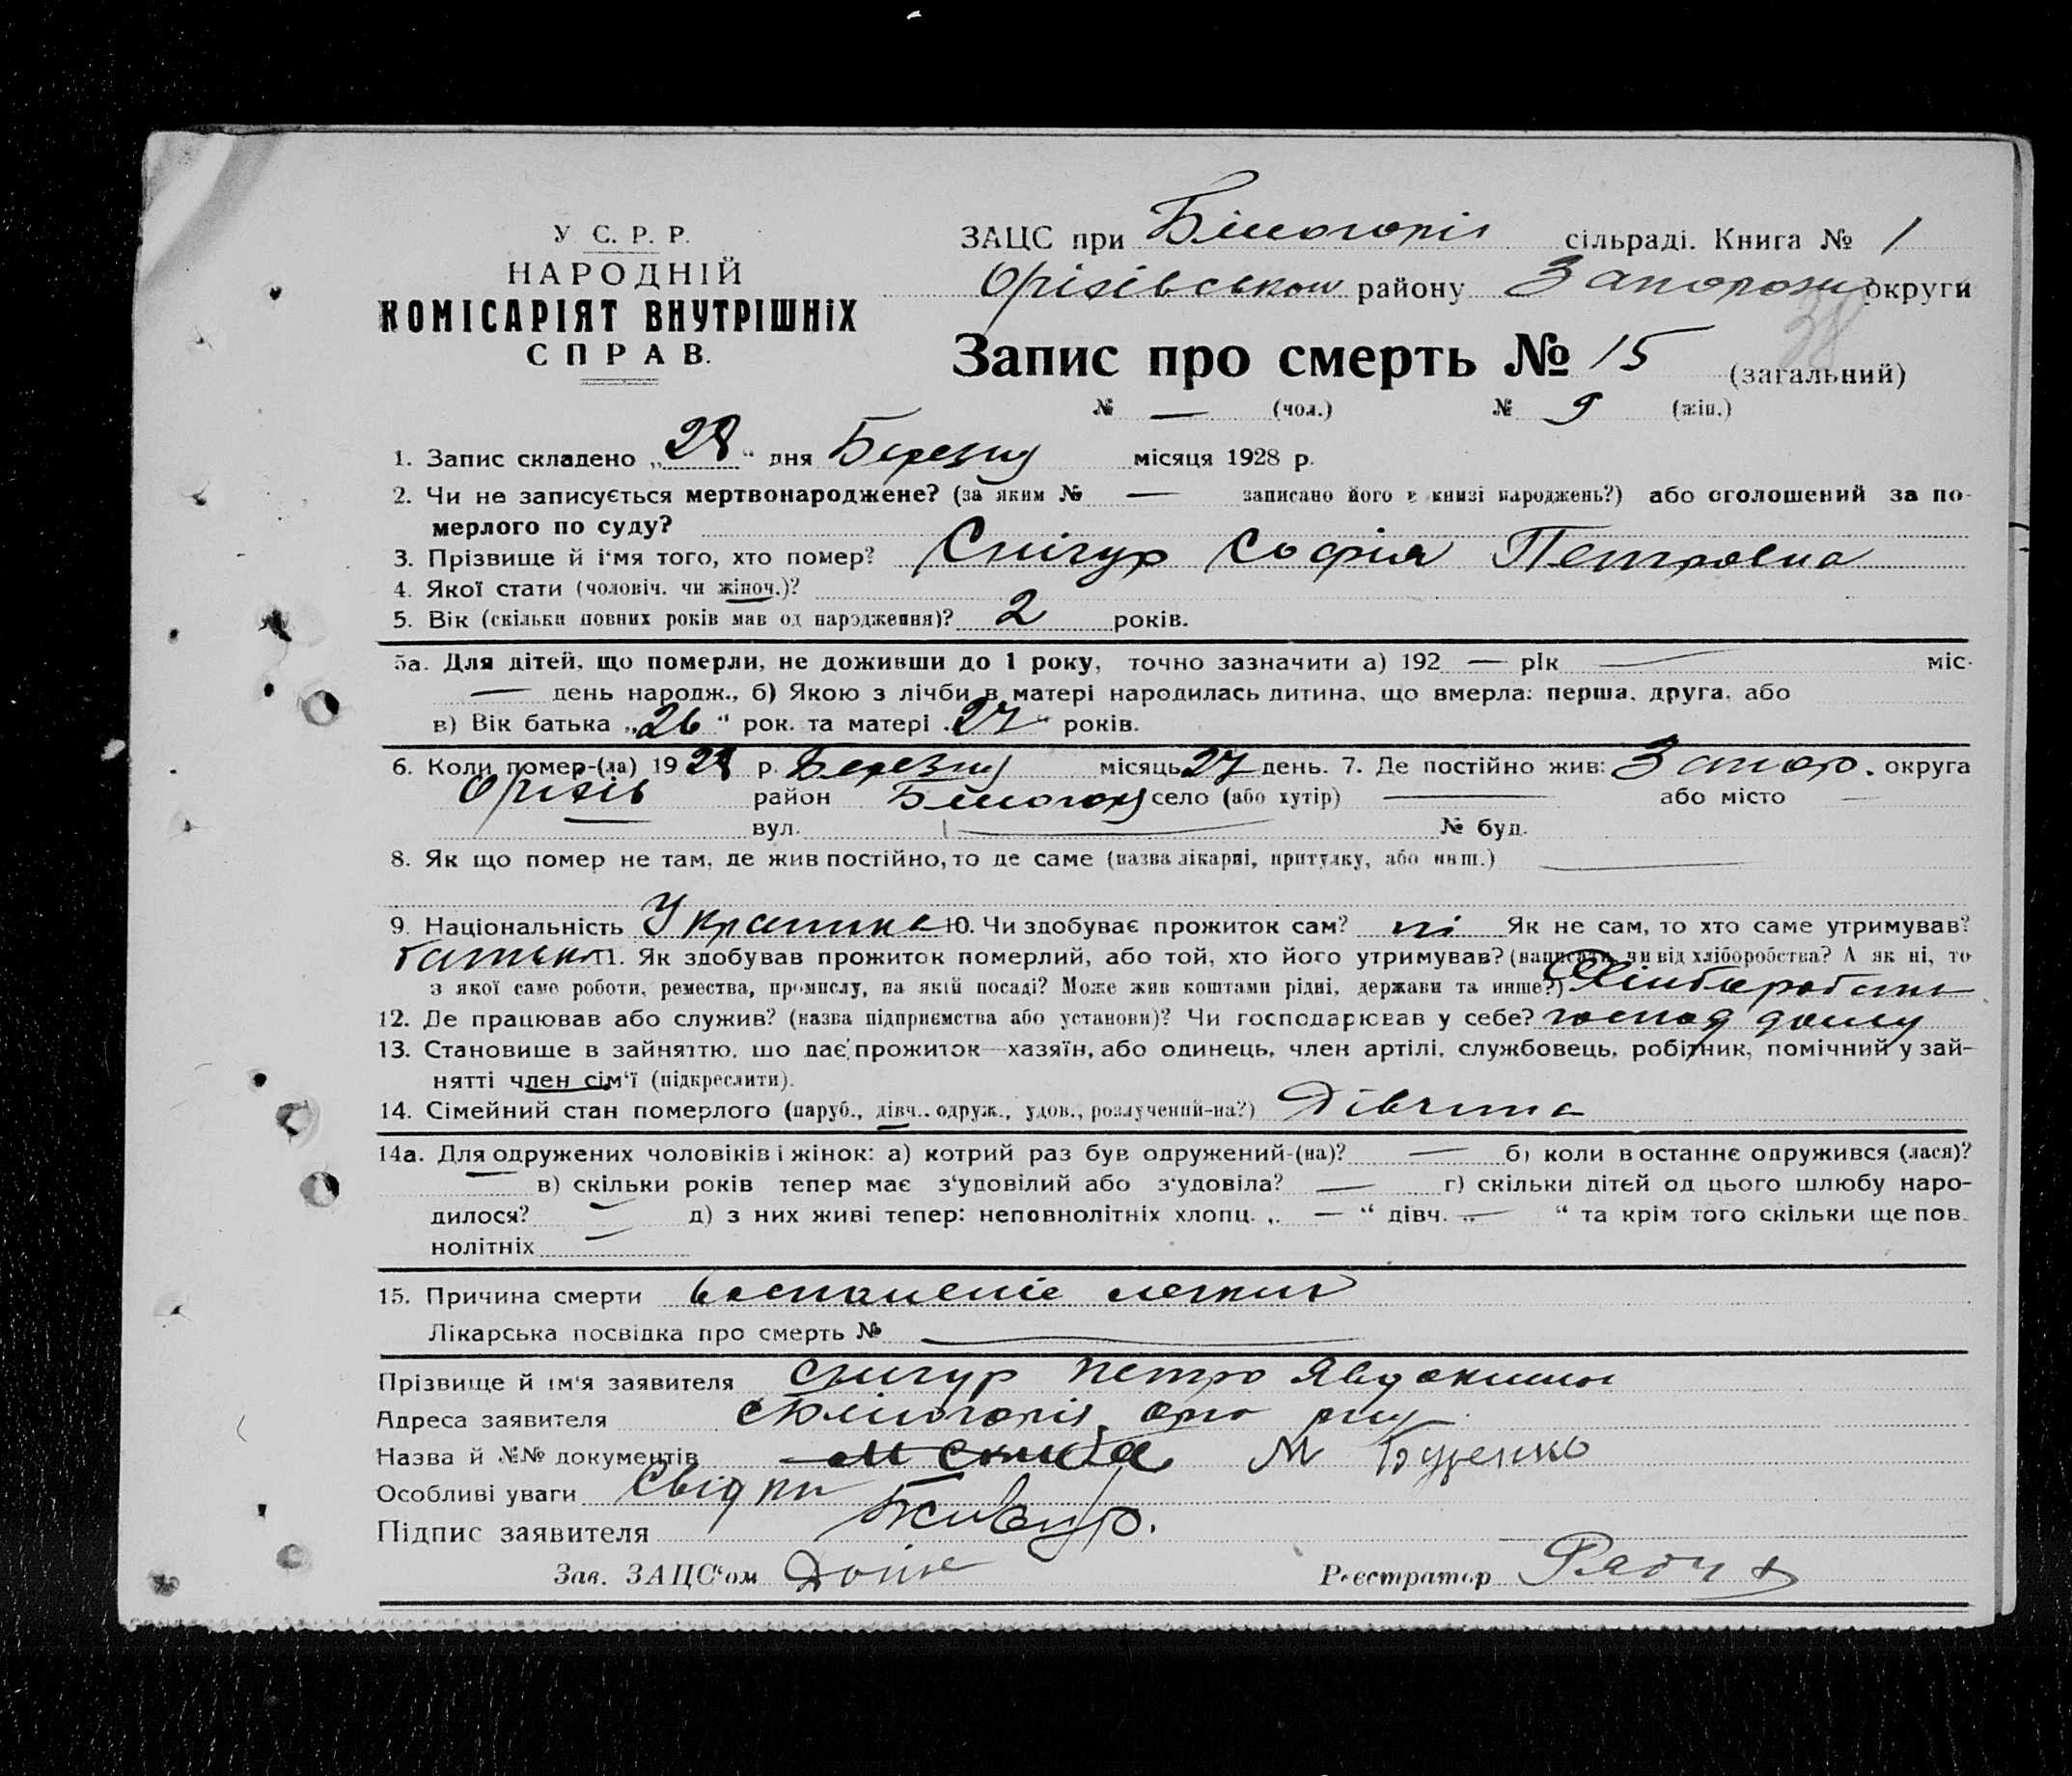 У. С. Р. Р.
НАРОДНІЙ
КОМІСАРІЯТ ВНУТРІШНІХ
СПРАВ.
ЗАЦС при Білогоріє сільраді. Книга № 1
Оріхівського району Запорожи округи
38
Запис про смерть № 15 (загальний)
№ — (чол.) № 9 (жін.)
1. Запис складено „28“ дня Березня місяця 1928 р.
2. Чи не записується мертвонароджене? (за яким № — записано його в книзі народжень?) або оголошений за по-
мерлого по суду?
3. Прізвище й і‘мя того, хто помер? Снігур Софія Петровна
4. Якої стати (чоловіч. чи жіноч.)?
5. Вік (скільки повних років мав од народження)? 2 років.
5а. Для дітей, що померли, не доживши до 1 року, точно зазначити а) 192 — рік — міс.
— день народж., б) Якою з лічби в матері народилась дитина, що вмерла: перша, друга, або
в) Вік батька „26“ рок. та матері „27“ років.
6. Коли помер-(ла) 1928 р. Березня місяць 27 день. 7. Де постійно жив: Запор. округа
Оріхів район Білогоря село (або хутір) — або місто —
вул. — № буд.
8. Як що помер не там, де жив постійно, то де саме (назва лікарні, притулку, або инш.) —
9. Національність Українка 10. Чи здобуває прожиток сам? ні Як не сам, то хто саме утримував?
батько 11. Як здобував прожиток померлий, або той, хто його утримував? (написати, чи від хліборобства? А як ні, то
з якої саме роботи, ремества, промислу, на якій посаді? Може жив коштами рідні, держави та инше?) Хліборобства
12. Де працював або служив? (назва підприємства або установи)? Чи господарював у себе? господ дому
13. Становище в зайняттю, що дає прожиток—хазяїн, або одинець, член артілі, службовець, робітник, помічний у зай-
нятті член сім‘ї (підкреслити).
14. Сімейний стан померлого (паруб., дівч., одруж., удов., розлучений-на?) Дівчина
14а. Для одружених чоловіків і жінок: а) котрий раз був одружений-(на)? — б) коли востаннє одружився (лася)?
— в) скільки років тепер має з‘удовілий або з‘удовіла? — г) скільки дітей од цього шлюбу наро-
дилося? — д) з них живі тепер: неповнолітніх хлопц. „—“ дівч. „—“ та крім того скільки ще пов-
нолітніх —
15. Причина смерти воспаленіе легких
Лікарська посвідка про смерть № —
Прізвище й ім‘я заявителя Снигур Петро Явдокимов
Адреса заявителя
Назва й №№ документів М Буценко
Особливі уваги Свідки
Підпис заявителя
Зав. ЗАЦС‘ом
Реєстратор